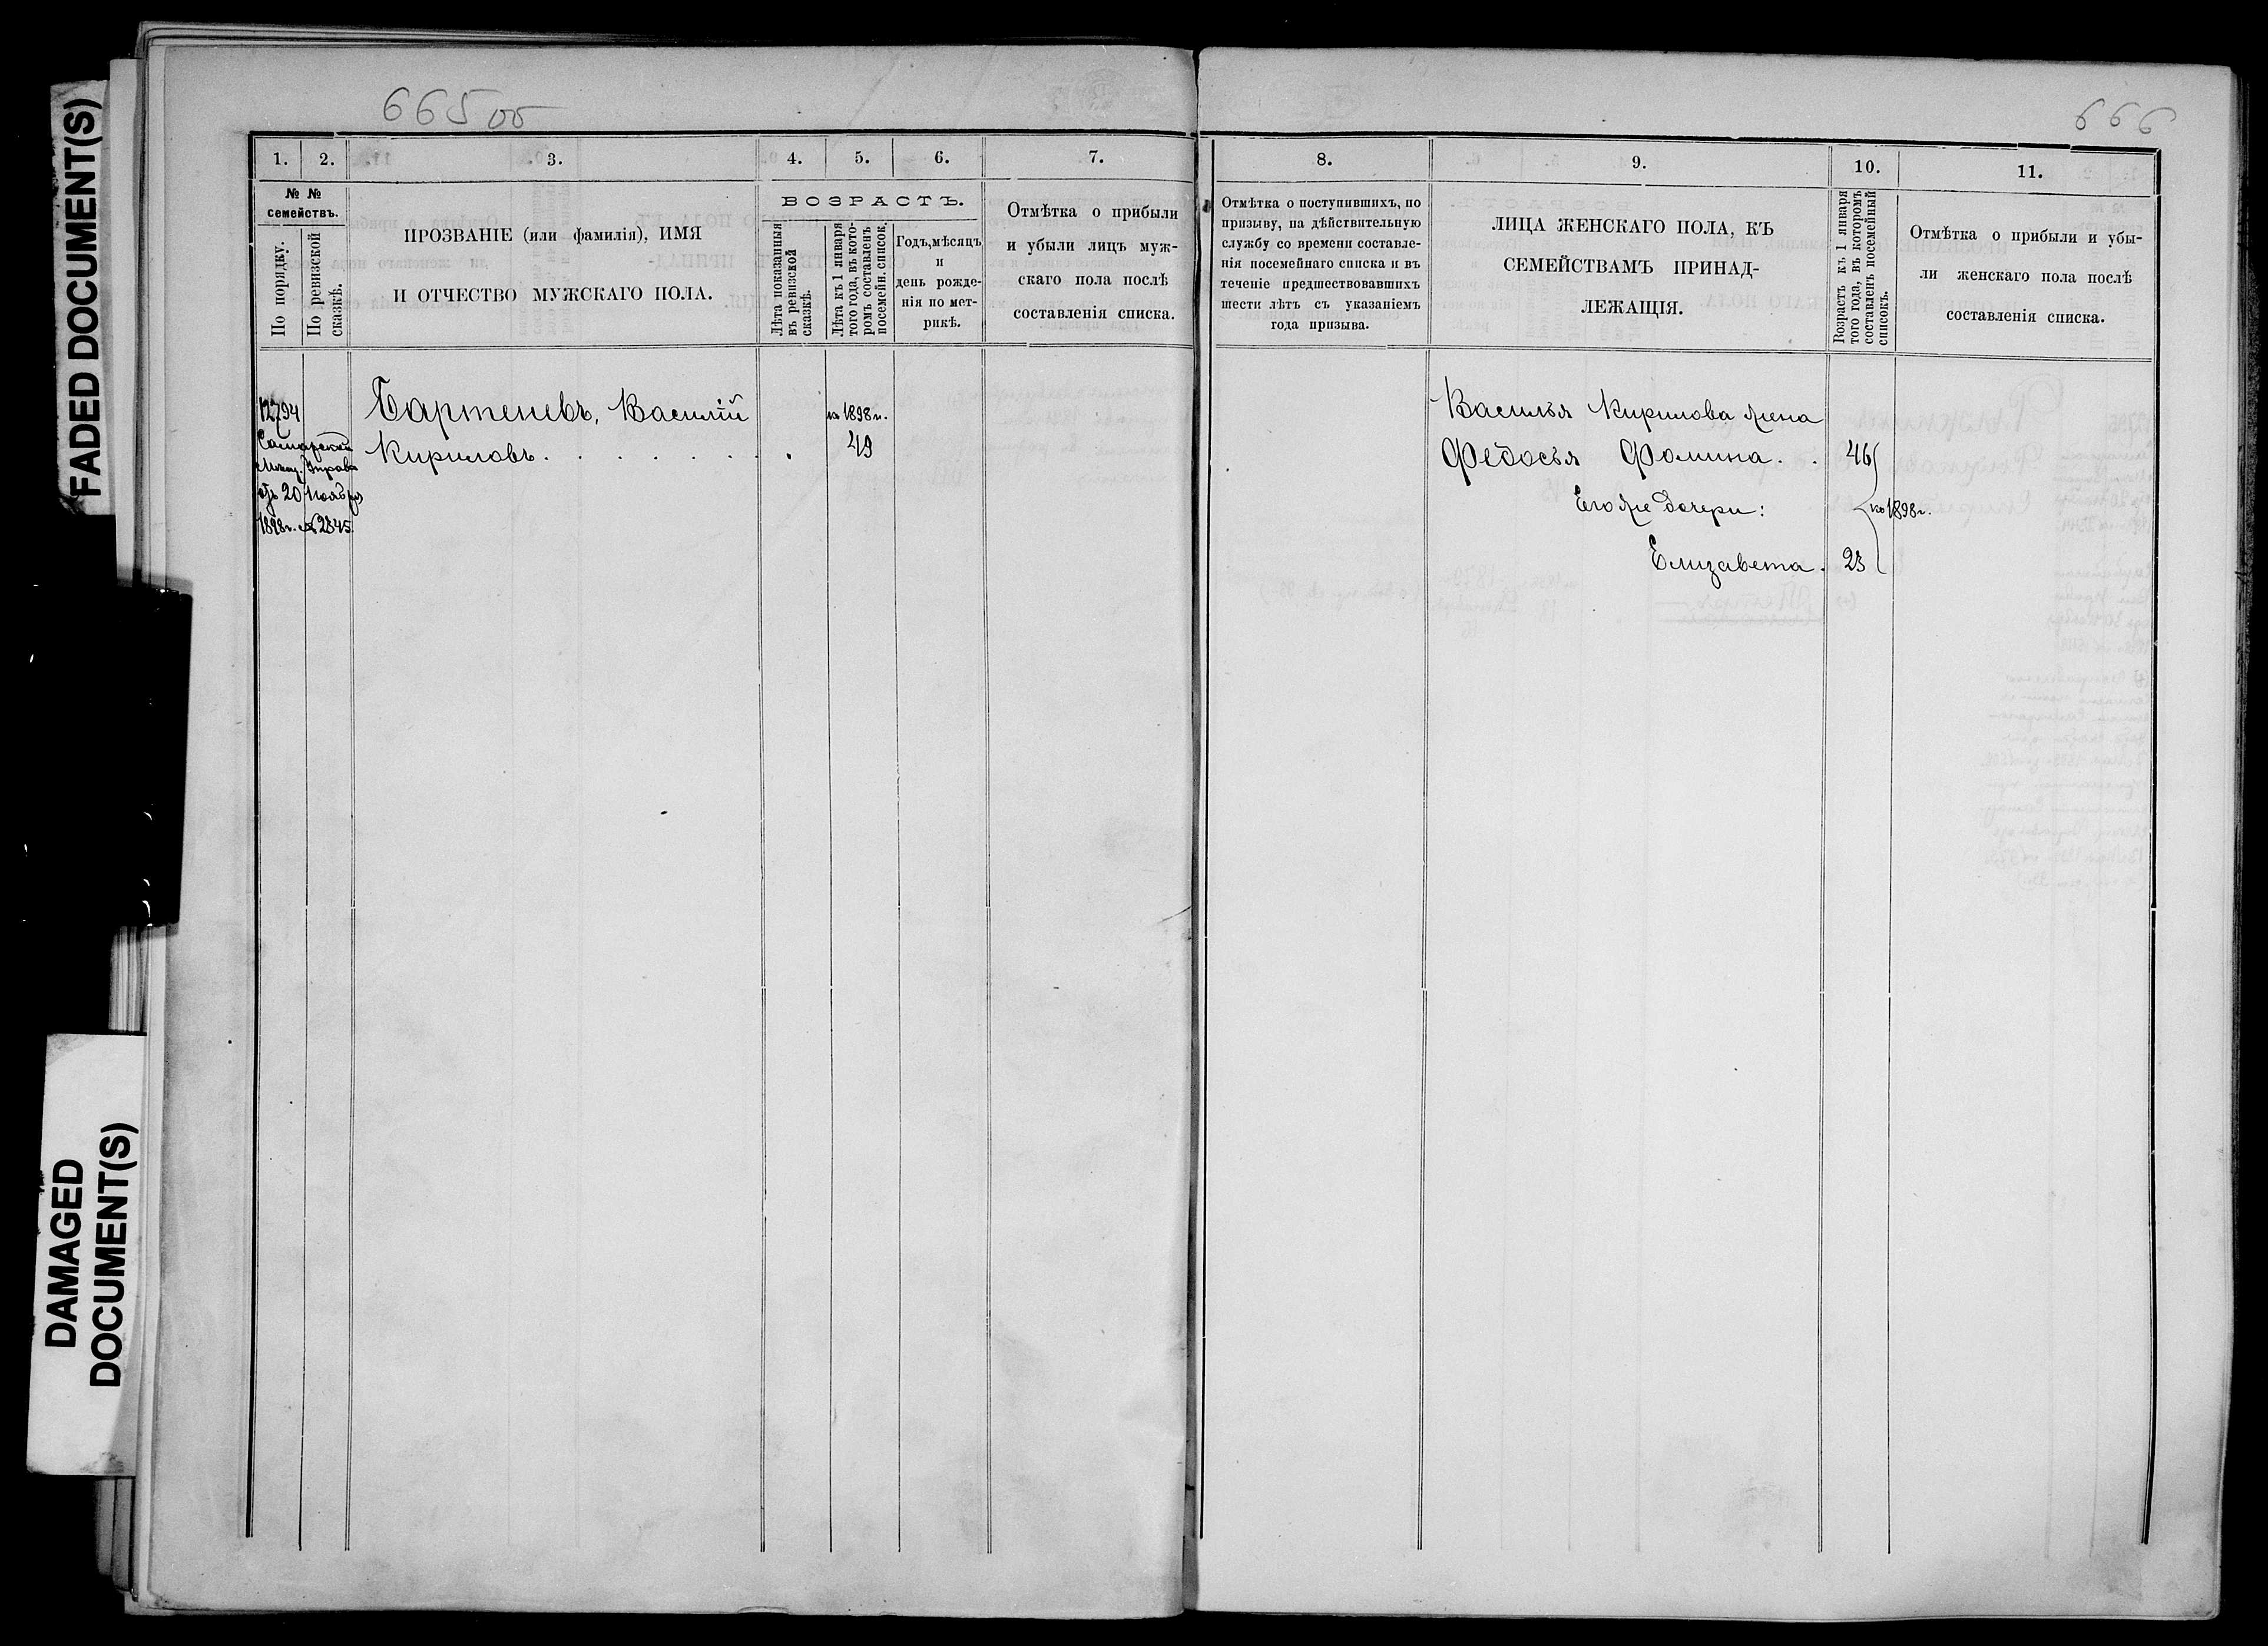 FADED DOCUMENT(S)
DAMAGED
DOCUMENT(S)
665 об
1.
2.
3.
4.
5.
6.
7.
№ №
семействъ.
По порядку.
По ревизской
сказкѣ.
ПРОЗВАНІЕ (или фамилія), ИМЯ
И ОТЧЕСТВО МУЖСКАГО ПОЛА.
ВОЗРАСТЪ.
Лѣта показанныя
въ ревизской
сказкѣ.
Лѣта къ 1 января
того года, въ кото-
ромъ составленъ
посемейн. список.
Годъ, мѣсяцъ
и
день рожде-
нія по мет-
рикѣ.
Отмѣтка о прибыли
и убыли лицъ муж-
скаго пола послѣ
составленія списка.
12794
Самарской
Мѣщ. Управы
отъ 20 Ноября
1898 г. № 2845
Бартеневъ, Василій
Кириловъ . . . . . . .
къ 1898 г.
49
666
8.
9.
10.
11.
Отмѣтка о поступившихъ, по
призыву, на дѣйствительную
службу со времени составле-
нія посемейнаго списка и въ
теченіе предшествовавшихъ
шести лѣтъ съ указаніемъ
года призыва.
ЛИЦА ЖЕНСКАГО ПОЛА, КЪ
СЕМЕЙСТВАМЪ ПРИНАД-
ЛЕЖАЩІЯ.
Возрастъ къ 1 января
того года, въ которомъ
составленъ посемейный
списокъ.
Отмѣтка о прибыли и убы-
ли женскаго пола послѣ
составленія списка.
Василья Кирилова жена
Федосья Фомина . . 46
Его же дочери:
къ 1898 г.
Елизавета . 23